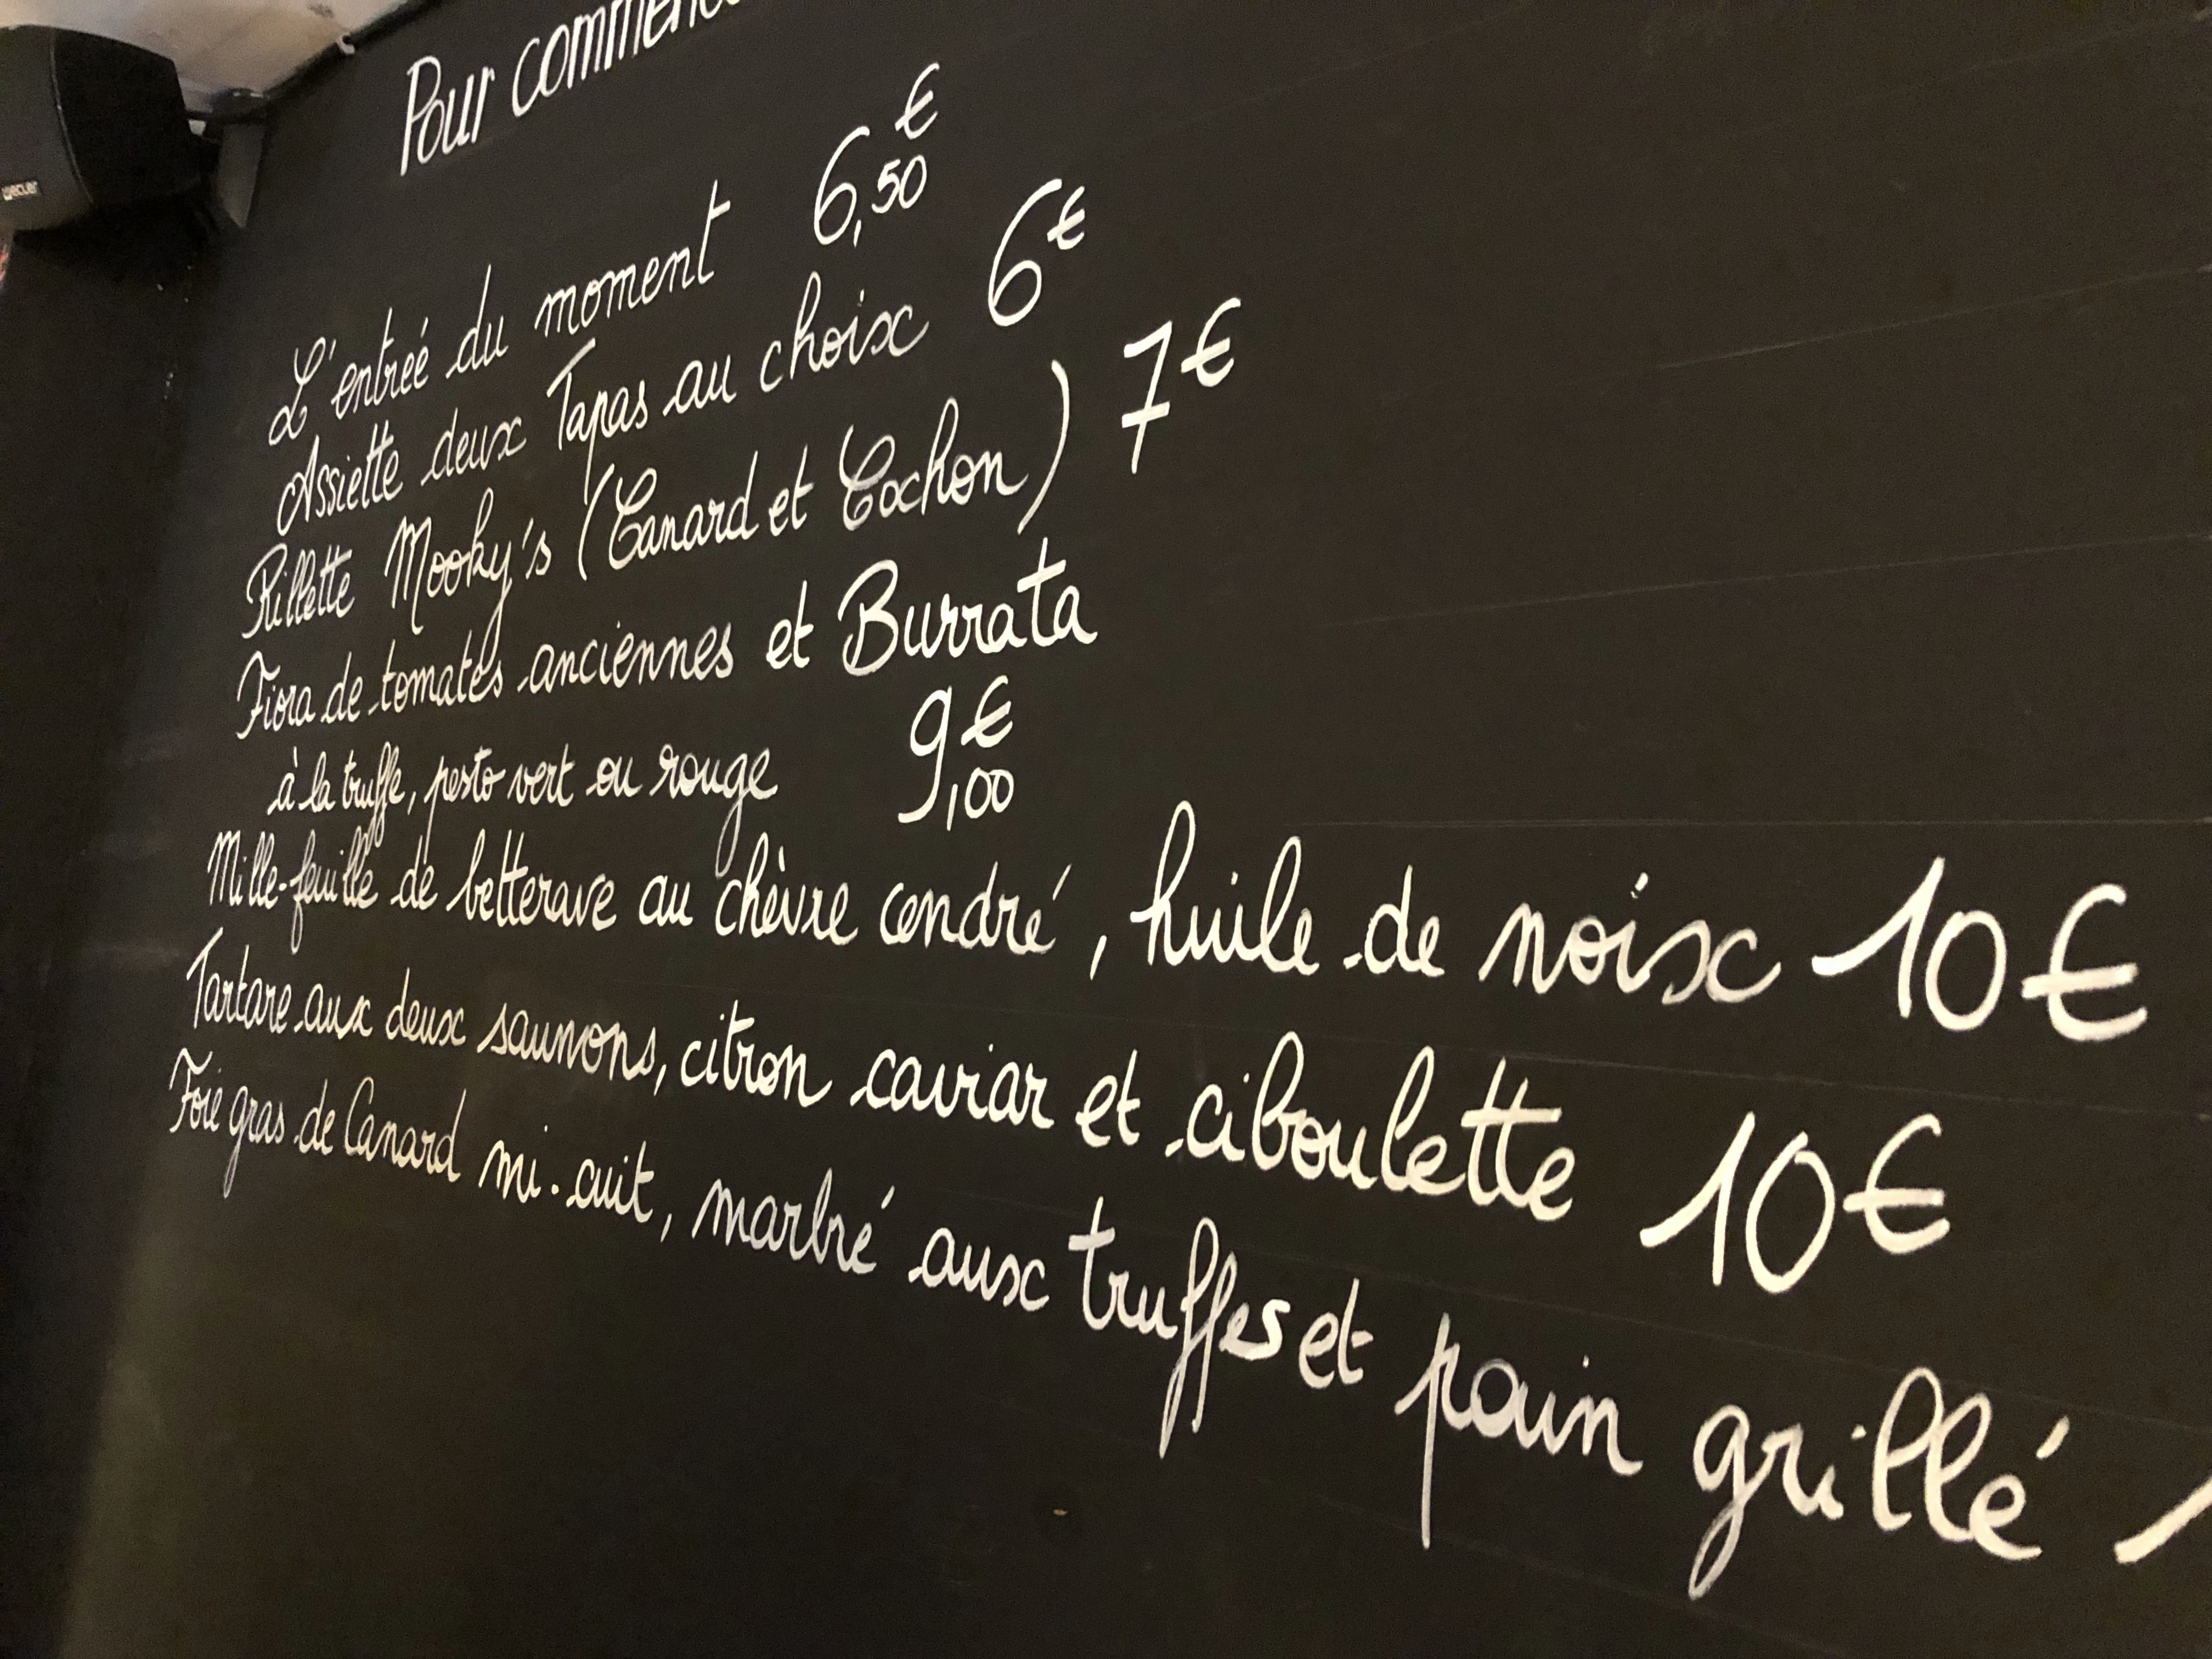 Pour commenc
L'entrée du moment 6,50 €
Assiette deux Tapas au choix 6€
Rillette Mooky's (Canard et Cochon) 7€
Fiora de tomates anciennes et Burrata
à la truffe, pesto vert ou rouge 9,00 €
Mille-feuille de betterave au chèvre cendré, huile de noix 10€
Tartare aux deux saumons, citron caviar et ciboulette 10€
Foie gras de Canard mi-cuit, marbré aux truffes et pain grillé 1